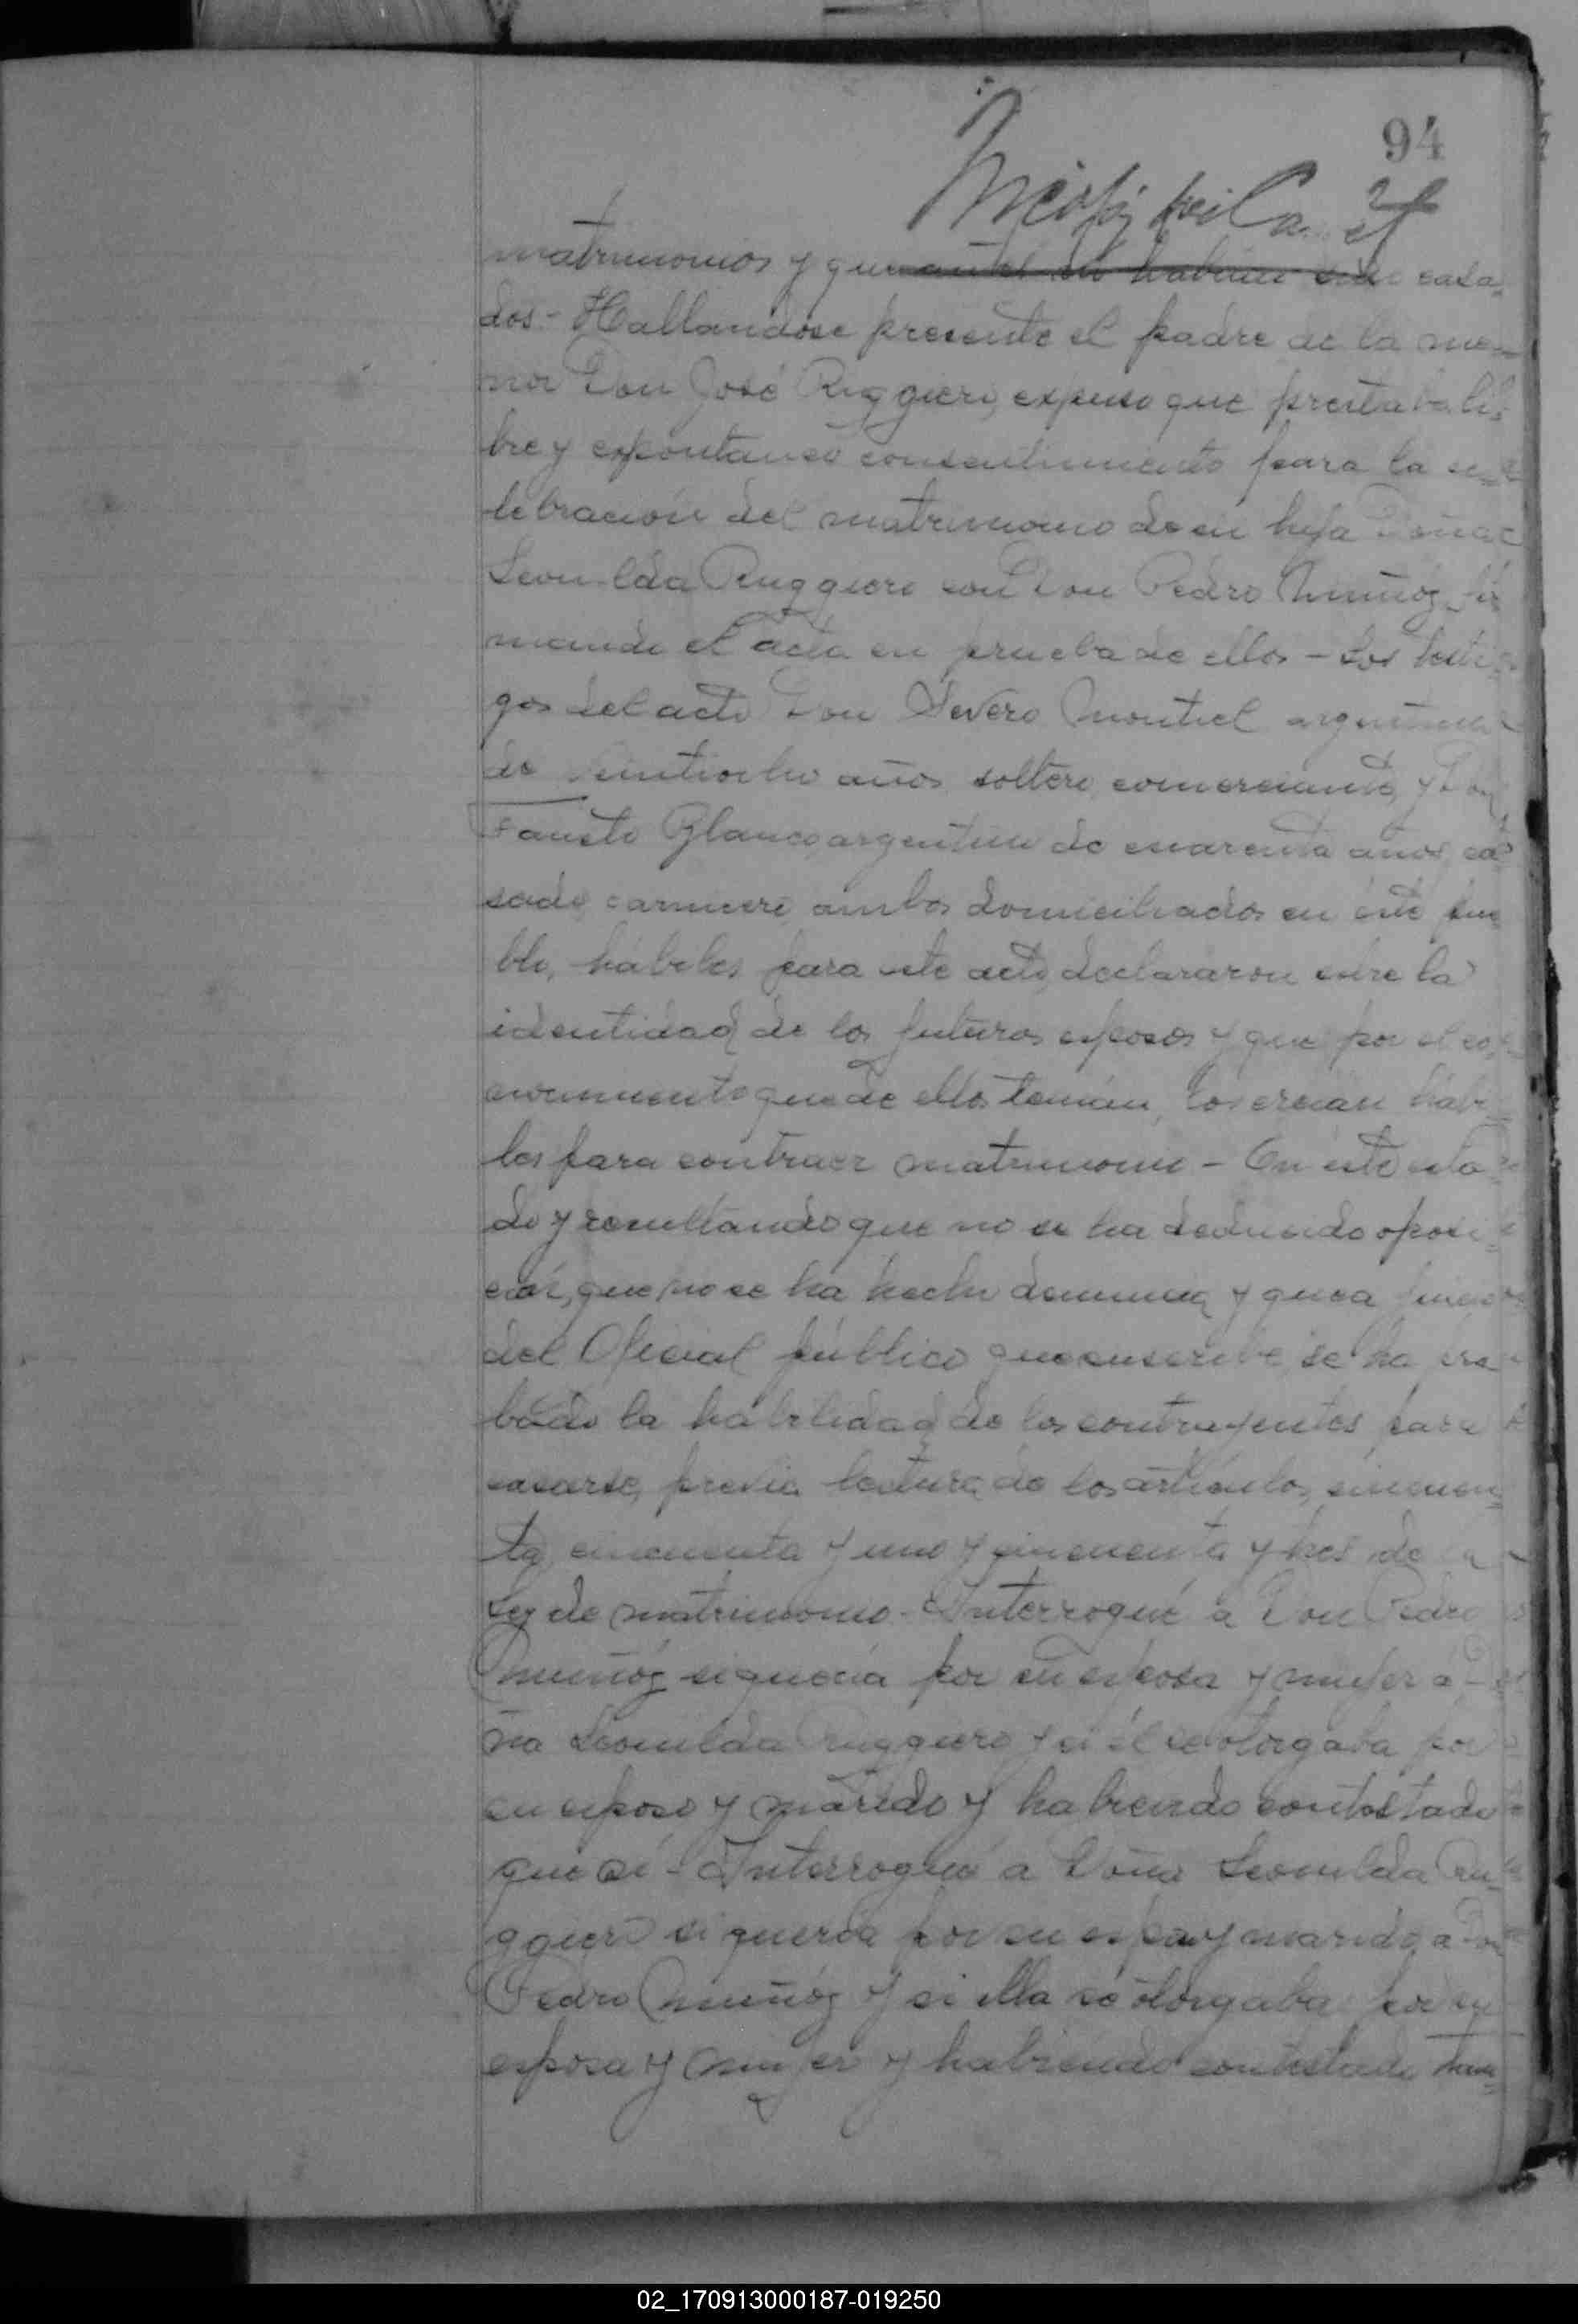 94
matrimonios y que antes no habían sido casa-
dos - Hallandose presente el padre de la me-
nor Don José Ruggieri, expuso que prestaba li-
bre y espontaneo consentimiento para la ce-
lebración del matrimonio de su hija Doña
Leonilda Ruggiero con Don Pedro Muñóz fir-
mando el acta en prueba de ello - Los testi-
gos del acto Don Severo Montiel argentino
de veintiocho años soltero, comerciante, y Don
Fausto Blanco, argentino de cuarenta años, ca-
sado, carnicero ambos domiciliados en éste pue-
blo, hábiles para este acto, declararon sobre la
identidad de los futuros esposos y que por el co-
nocimiento que de ellos tenían, los creían hábi-
les para contraer matrimonio - En este esta-
do y resultando que no se ha deducido oposi-
ción, que no se ha hecho denuncia y que a juicio
del Oficial público que suscribe, se ha pro-
bado la habilidad de los contrayentes para
casarse, previa lectura de los artículos, cincuen-
ta, cincuenta y uno y cincuenta y tres de la
Ley de matrimonio - Interrogué a Don Pedro
Muñóz si quería por su esposa y mujer á Do-
ña Leonilda Ruggiero y si él se otorgaba por
su esposo y marido y habiendo contestado
que sí - Interrogué a Doña Leonilda Ru-
ggiero si quería por su esposo y marido, a Don
Pedro Muñóz y si ella se otorgaba por su
esposa y mujer y habiendo contestado tam-
02_170913000187-019250